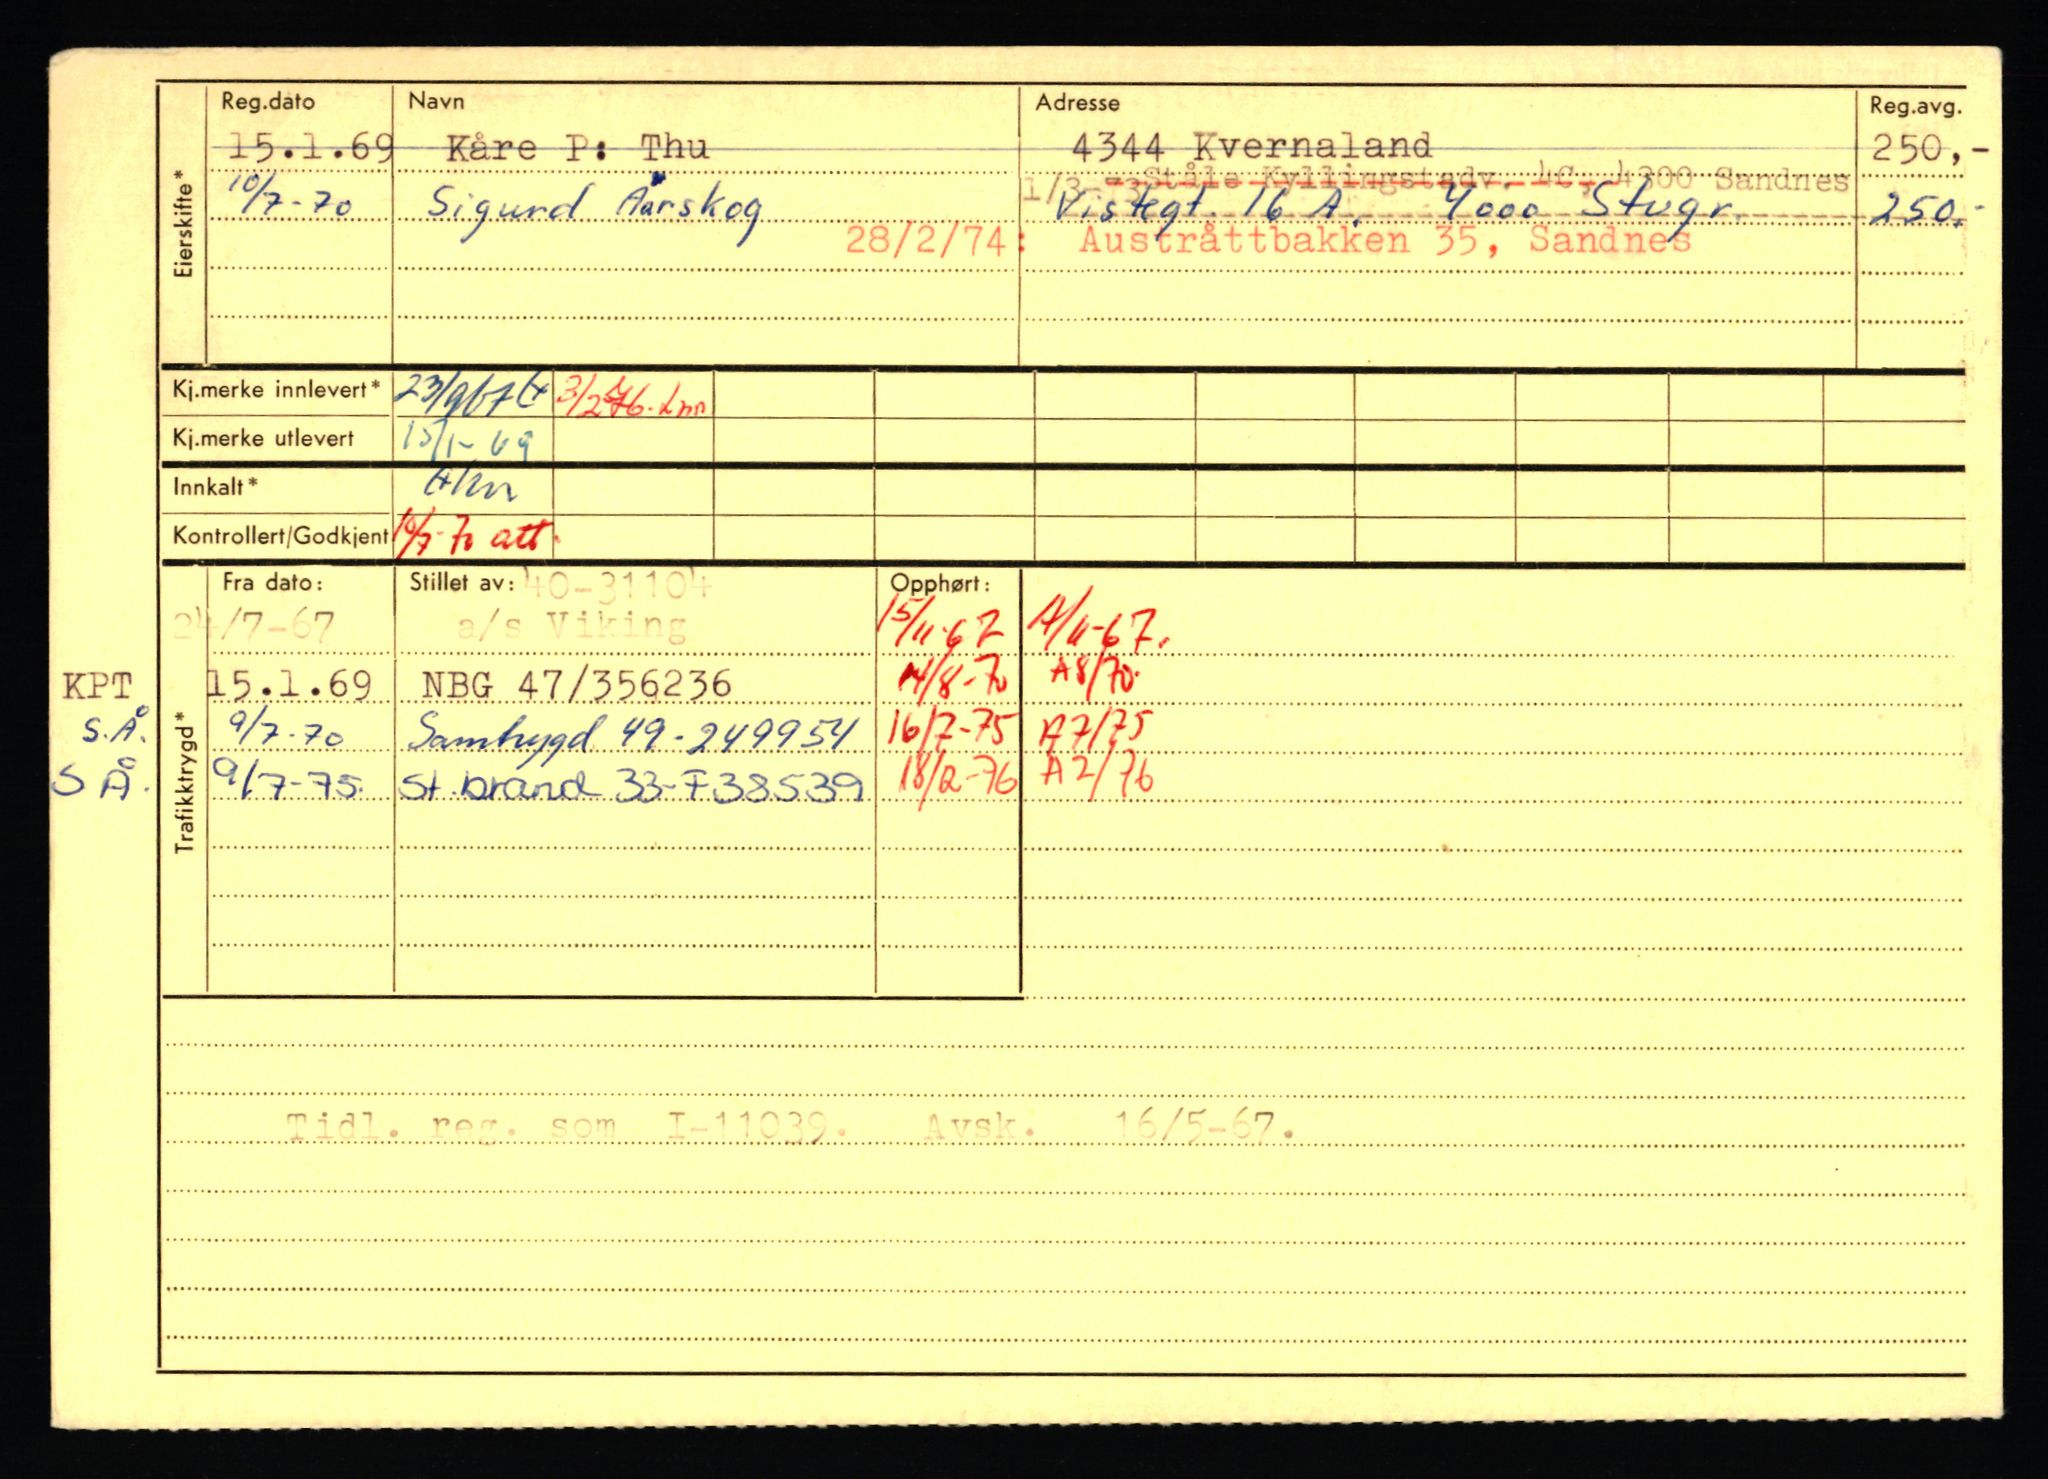 Reg.dato Navn Adresse Reg.avg.
Eierskifte*
15.1.69 Kåre P: Thu 4344 Kvernaland 250,-
Ståle Kyllingstadv. 4C, 4300 Sandnes
10/7-70 Sigurd Aarskog Vistegt. 16 A. 4000 Stvgr. 250,-
28/2/74: Austråttbakken 35, Sandnes
Kj.merke innlevert* 3/2-76.
Kj.merke utlevert 15/1-69
Innkalt*
Kontrollert/Godkjent 10/7-70 att.
Trafikktrygd*
Fra dato: Stillet av: 40-31104 Opphørt:
24/7-67 a/s Viking 15/11-67 A/11-67.
KPT 15.1.69 NBG 47/356236 14/8-70 A8/70.
S.Å. 9/7-70 Samtrygd 49-249954 16/7-75 A7/75
S Å. 9/7-75. St.brand 33-F38539 18/2-76 A2/76
Tidl. reg. som I-11039. Avsk. 16/5-67.